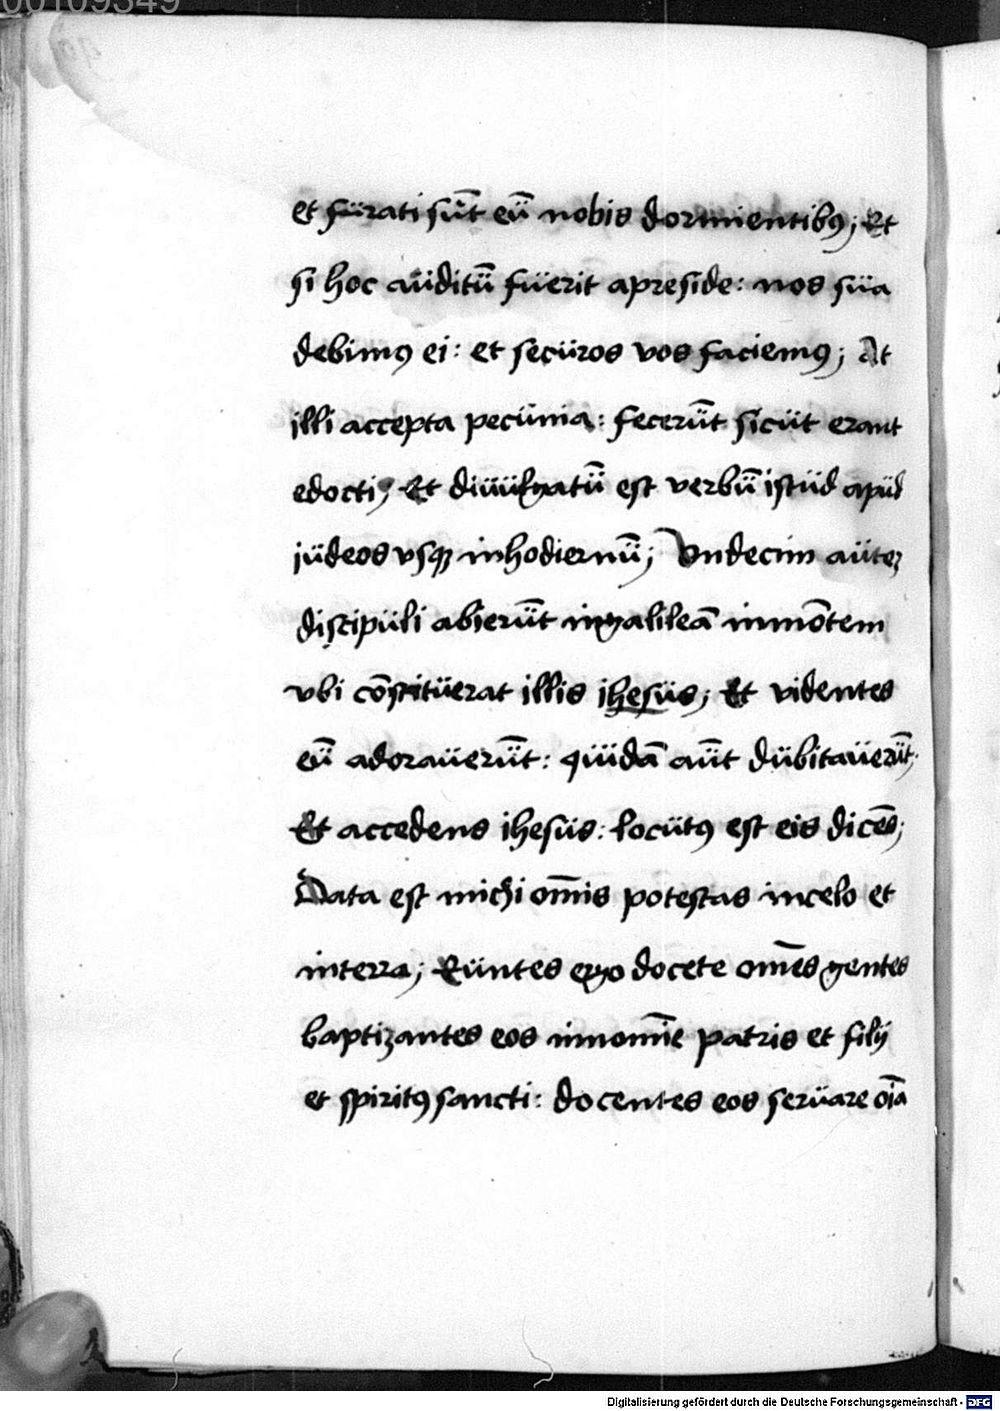 00109349
et fürati sűt eű nobis dormientibꝰ; Et
si hoc aüditű füerit apreside: nos süa
debimꝰ ei: et secüros vos faciemꝰ; At
illi accepta pecünia: fecerűt sicüt erant
edocti; Et diüülgatű est verbű istüd apüd
jüdeos vsqꝫ inhodiernű; Vndecim aüteꝫ
discipüli abierűt ingalileā inmōtem
vbi cōstitüerat illis ihesüs; Et videntes
eű adoraüerűt: qüidā aűt dübitaüerűt;
Et accedens ihesüs: locütꝰ est eis dicēs;
Data est michi om̄is potestas incelo et
interra; Eüntes ergo docete om̄es gentes
baptizantes eos innom̄ie patris et filij
et spiritꝰ sancti: docentes eos serüare oı̄a
Digitalisierung gefördert durch die Deutsche Forschungsgemeinschaft - DFG